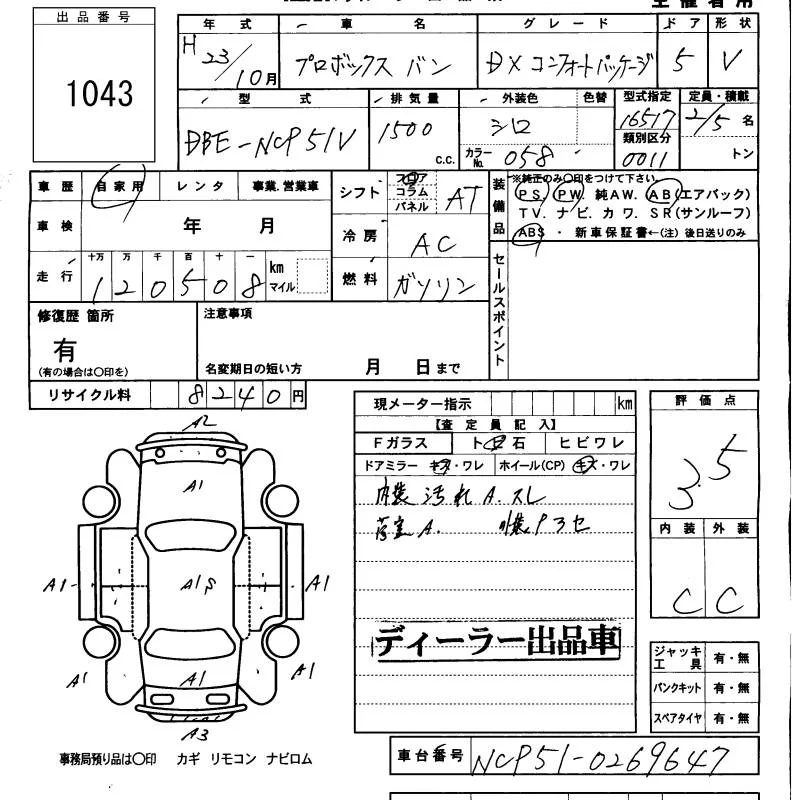 出品番号
1043
年式 車名 グレード ドア 形状
H23/10月 プロボックス バン DX コンフォートパッケージ 5 V
型式 排気量 外装色 色替 型式指定 定員・積載
DBE-NCP51V 1500 c.c. シロ 16517 2/5名
カラーNo. 058 類別区分 0011 トン
車歴 自家用 レンタ 事業.営業車
車検 年 月
走行 十万 万 千 百 十 一
120508 km マイル
シフト フロア コラム パネル AT
冷房 AC
燃料 ガソリン
装備品
※純正のみ○印をつけて下さい。
PS. PW. 純AW. AB(エアバック)
TV. ナビ. カワ. SR(サンルーフ)
ABS ・ 新車保証書←(注) 後日送りのみ
セールスポイント
修復歴 箇所
有
(有の場合は○印を)
注意事項
名変期日の短い方 月 日まで
リサイクル料 8240円
現メーター指示 km
【査定員記入】
Fガラス トビ石 ヒビワレ
ドアミラー キズ・ワレ ホイール(CP) キズ・ワレ
内装汚れ A.スレ
荷室A. P3セ
ディーラー出品車
評価点
3.5
内装 外装
C C
ジャッキ工具 有・無
パンクキット 有・無
スペアタイヤ 有・無
A2
A1
A1 A1S A1
A1 A1 A1
A3
事務局預り品は○印 カギ リモコン ナビロム
車台番号 NCP51-0269647